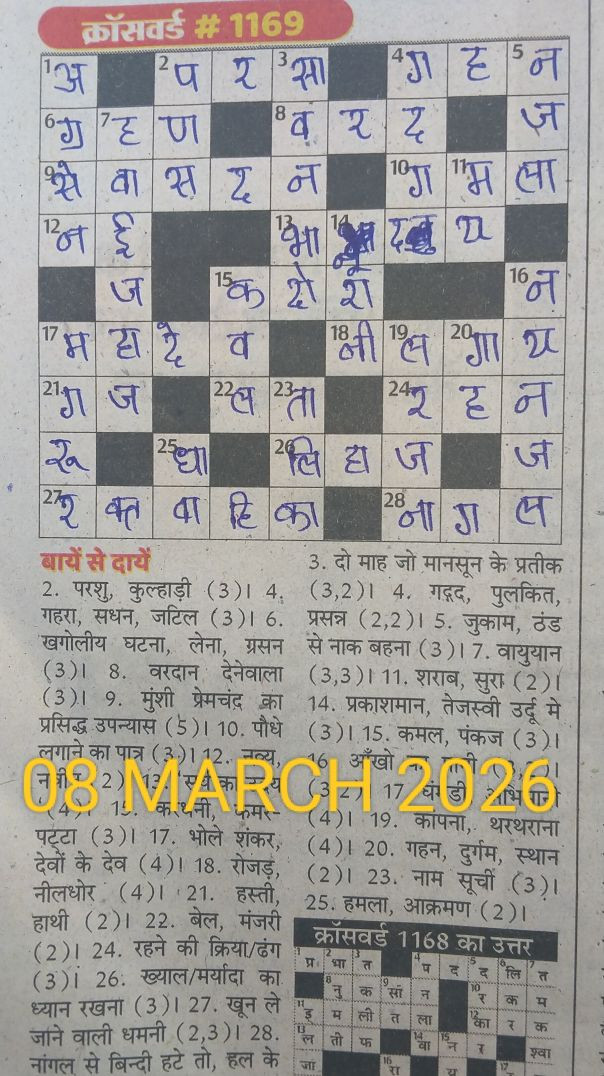 क्रॉसवर्ड # 1169
1 अ 2 प र 3 सा 4 ग ह 5 न
6 ग्र 7 ह ण 8 व र द ज
9 से वा स द न 10 ग 11 म ला
12 न ई 13 भा 14 नू द य
ज 15 क दो रा 16 न
17 म हा दे व 18 नी 19 ल 20 गा य
21 ग ज 22 ल 23 ता 24 र ह न
रू 25 धा 26 लि हा ज ज
27 र क्त वा हि का 28 ना ग ल
बायें से दायें
2. परशु, कुल्हाड़ी (3)। 4.
गहरा, सधन, जटिल (3)। 6.
खगोलीय घटना, लेना, ग्रसन
(3)। 8. वरदान देनेवाला
(3)। 9. मुंशी प्रेमचंद का
प्रसिद्ध उपन्यास (5)। 10. पौधे
लगाने का पात्र (3)। 12. नव्य,
(4)। 15. करधनी, कमर-
पट्टा (3)। 17. भोले शंकर,
देवों के देव (4)। 18. रोजड़,
नीलधोर (4)। 21. हस्ती,
हाथी (2)। 22. बेल, मंजरी
(2)। 24. रहने की क्रिया/ढंग
(3)। 26. ख्याल/मर्यादा का
ध्यान रखना (3)। 27. खून ले
जाने वाली धमनी (2,3)। 28.
नांगल से बिन्दी हटे तो, हल के
3. दो माह जो मानसून के प्रतीक
(3,2)। 4. गद्गद, पुलकित,
प्रसन्न (2,2)। 5. जुकाम, ठंड
से नाक बहना (3)। 7. वायुयान
(3,3)। 11. शराब, सुरा (2)।
14. प्रकाशमान, तेजस्वी उर्दू मे
(3)। 15. कमल, पंकज (3)।
16. आँखो
17.
(4)। 19. कांपना, थरथराना
(4)। 20. गहन, दुर्गम, स्थान
(2)। 23. नाम सूचीं (3)।
25. हमला, आक्रमण (2)।
08 MARCH 2026
क्रॉसवर्ड 1168 का उत्तर
1 प्र 2 भा 3 त 4 प द 5 द 6 लि 7 त
8 नु क 9 सा न 10 र क म
11 इ म ली त ला 12 का र क
13 ल ती फ 14 वा 15 न र श्वा
जा 16 रा य 17